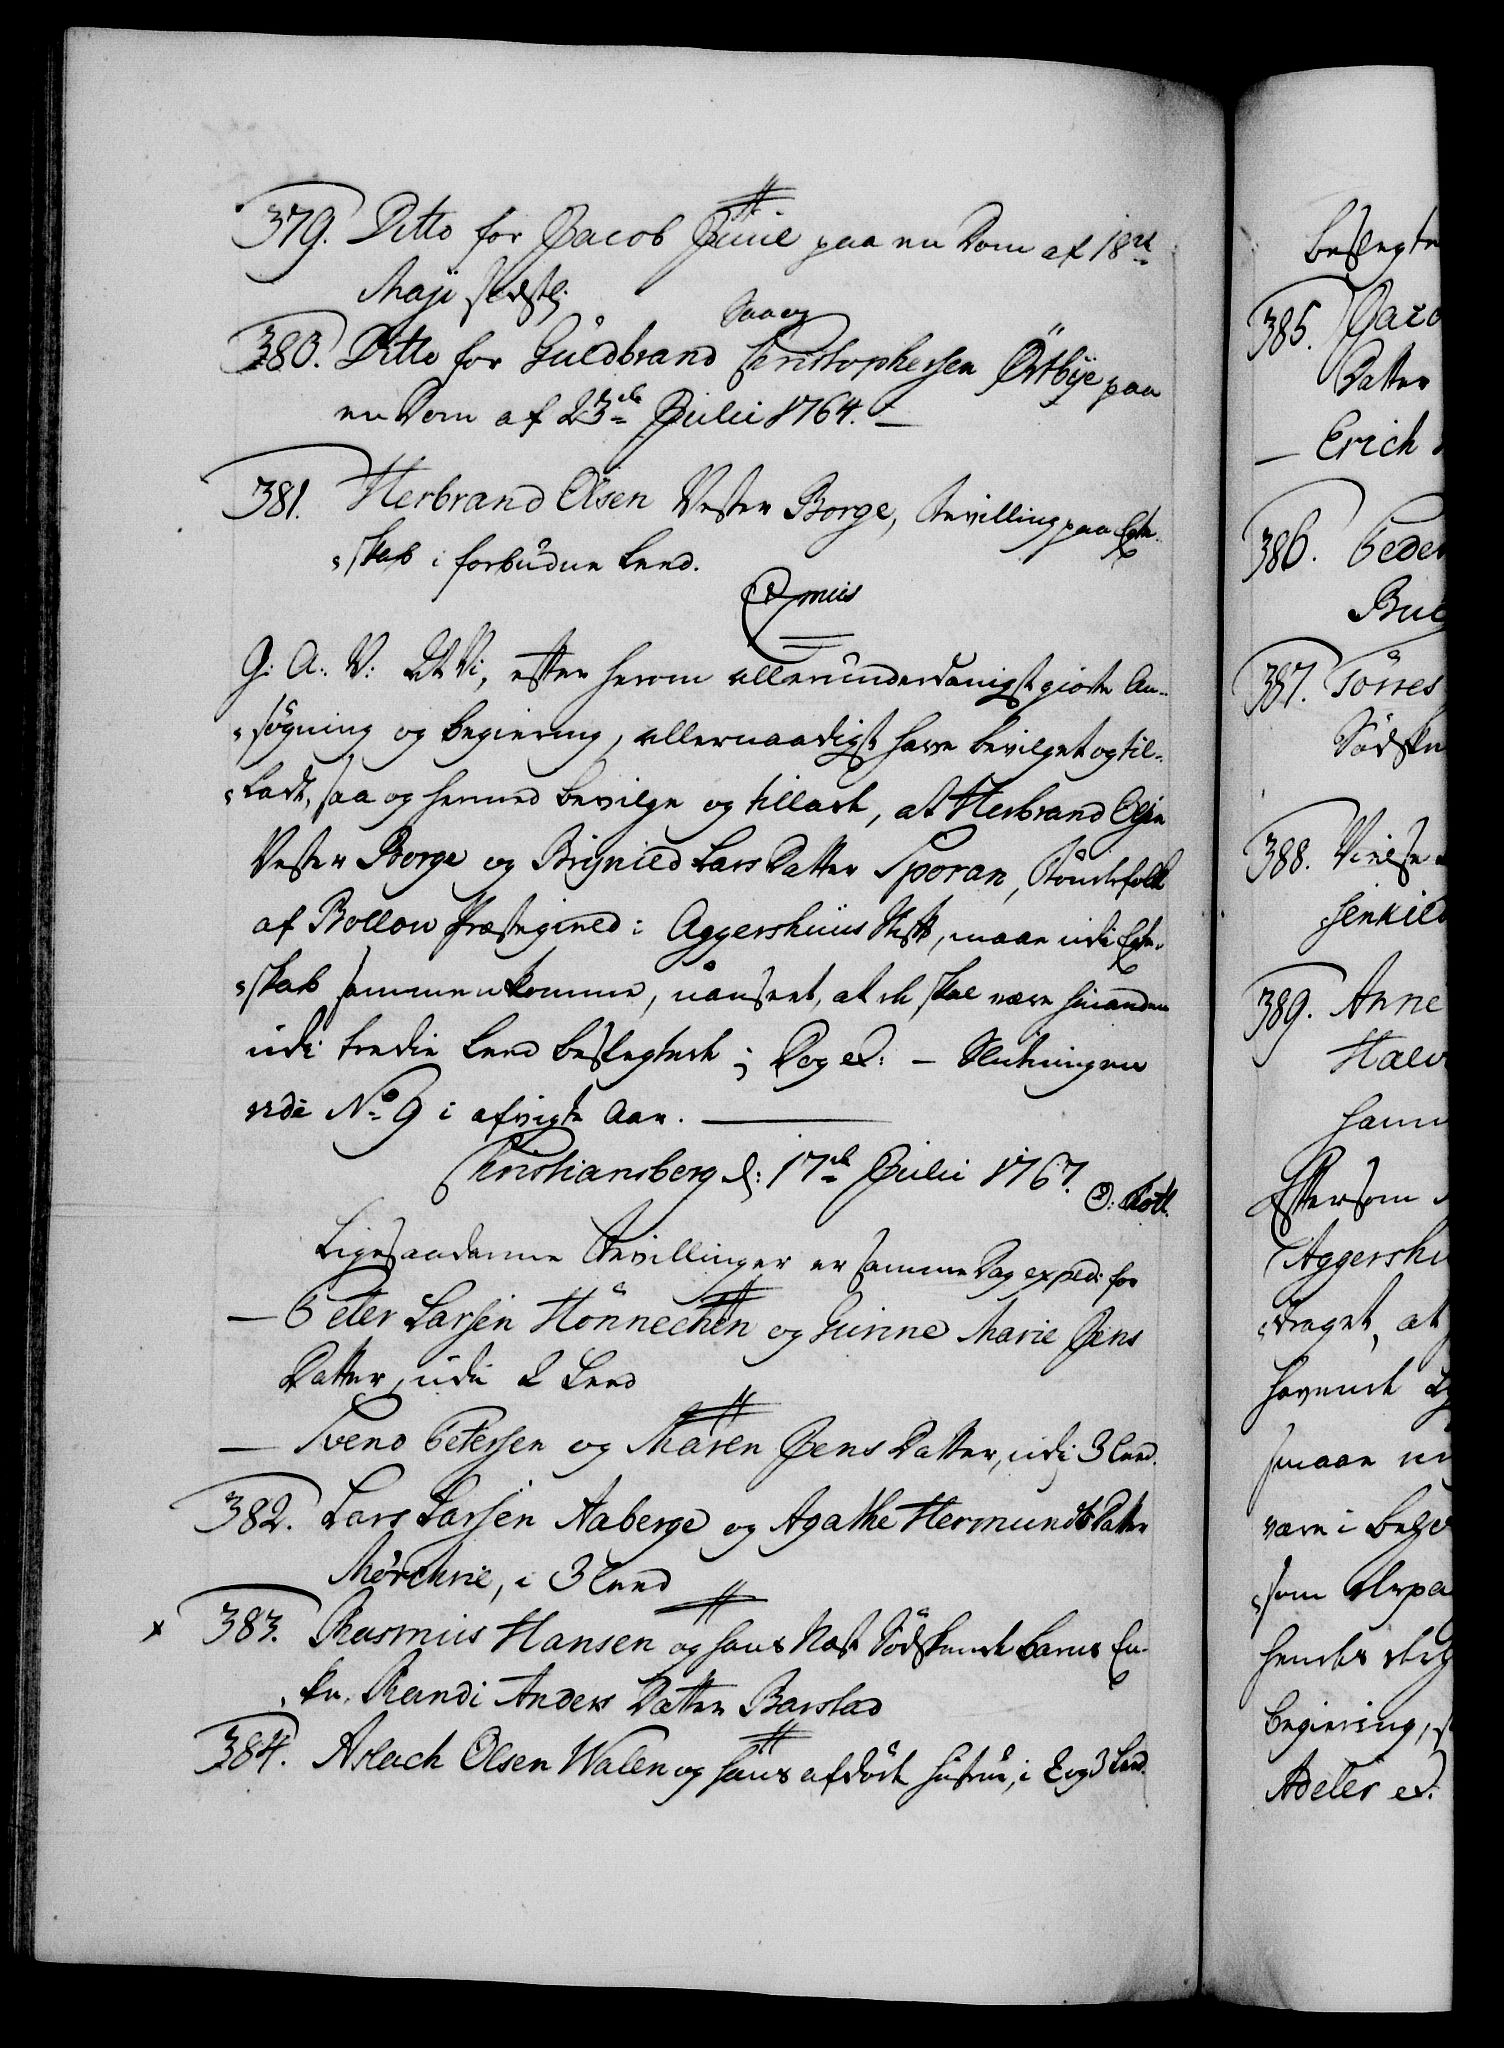 379. Ditto for Jacob Juul paa en Dom af 18de
Maji sidstl:
Saa og
380. Ditto for Guldbrand Christophersen Östbye paa
en Dom af 23de Julii 1764. –
381. Herbrand Olsen Vester Borge, Bevilling paa Egte-
skab i forbudne Leed.
Gratis
G: A: V: At Vi, efter herom allerunderdanigst giorte An-
søgning og begiering, allernaadigst have bevilget og til-
ladt, saa og hermed bevilge og tillade, at Herbrand Olsen
Vester Borge og Brynild Lars Datter Sporan, Bøndefolk
af Præstegield i Aggershuus Stift, maae udi Egte-
skab sammenkomme, uanseet, at de skal være hinanden
udi tredie Leed beslegtede; Dog et: – Slutningen
vide No 9 i afvigte Aar.
Christiansberg d: 17de Julii 1767. O: Thott.
Ligesaadanne Bevillinger er samme Dag exped: for
– Peter Larsen Hönnechen og Gunne Marie Jens
Datter, udi 2 Leed
– Svend Petersen og Maren Jens Datter, udi 3 Leed.
382. Lars Larsen Aaberge og Agathe Hermunds Datter
Mørchrie, i 3 Leed
x 383. Rasmus Hansen og hans Næst Södskende Barns En-
ke, Randi Anders Datter Barstad
384. Aslach Olsen Walen og hans afdøde Hustrue, i 2 og 3 Leed.
beslegte
385. Jaco
Datter
– Erich
386. Peder
387. Törres
Södske
388. Vielse
389. Anne
Halv
ham
Eftersom
Aggershu
draget, at
havende
maae
være i
som
hendes
begiering,
Adeler et: